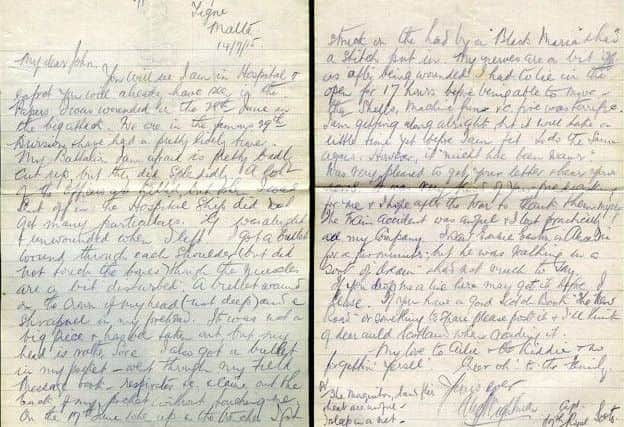 Tigne
Malta
14/7/15
My dear John,
You will see I am in Hospital &
expect you will already have seen in the
Papers I was wounded in the 28th June in
the big attack. We are in the famous 29th
Division & have had a pretty lively time.
My Battalion I am afraid is pretty badly
cut up, but they did splendidly. A lot
of the Officers got killed but
out of in the Hospital Ship did not
get many particulars.
& unwounded when I left. I got a bullet
wound through each shoulder but did
not touch the bones though the muscles
are a bit disturbed; A bullet wound
on the crown of my head (not deep) and a
shrapnel in my forehead. It was not a
big piece & has been taken out but my
head is rather sore. I also got a bullet
in my pocket - went through my field
message book - respirator & came out the
back of my pocket without touching me.
On the 19th June while up in the trenches I got
struck on the head by a "Black Maria" & had
a stitch put in. My nerves are a bit
as after being wounded I had to lie in the
open for 17 hours before being able to move -
the shells, machine guns &c fire was terrific.
I am getting along alright but it will take a
little time yet before I am fit & do the same
again. However, it might hae been waur.
Was very pleased to get your letter & hear your
news.
for me & I hope after the war to thank them myself.
The Train accident was awful & I lost practically
all my Company. I saw
for a few minutes; but he was walking in a
sort of dream & had not much to say.
If you drop me a line here I may get it before I
leave. If you have a good Scotch Book
or something to spare please post it & I'll think
of dear auld Scotland when reading it.
My love to & the Kiddie & no
forgettin' yersel'. Also ok' to the family.
Yours ever
PS The Mosquitoes, dam flies
& heat are awful -
I sleep in a net.
Capt.
Royal Scots